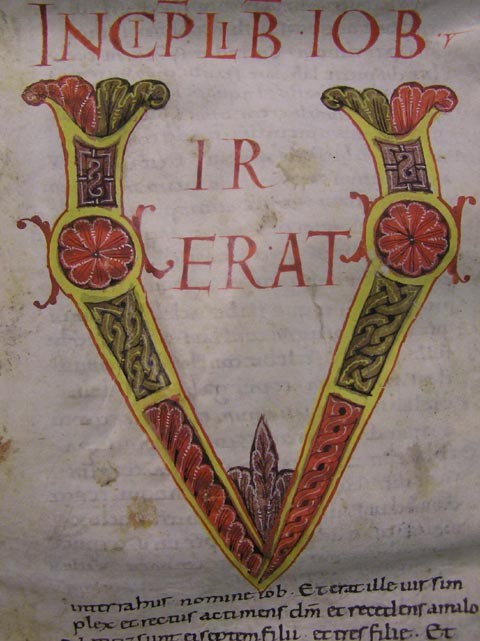 INCIP LIB · IOB ·
V
IR
ERAT
in terra hus nomine iob. Et erat ille uir sim
plex et rectus ac timens dm̄ et recedens a malo
sunt ei septem filii et tres filie. Et